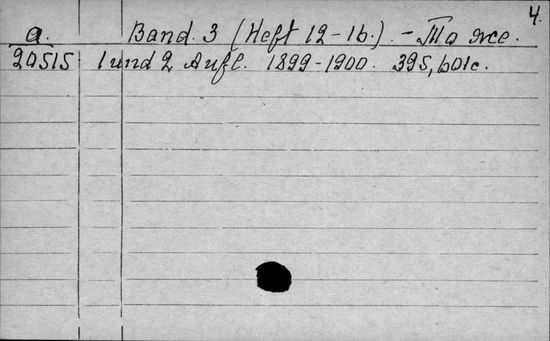 4.
a. Band. 3 (Heft 12-16.) - То же.
20515 1 und 2 Aufl. 1899-1900. 395, 601с.